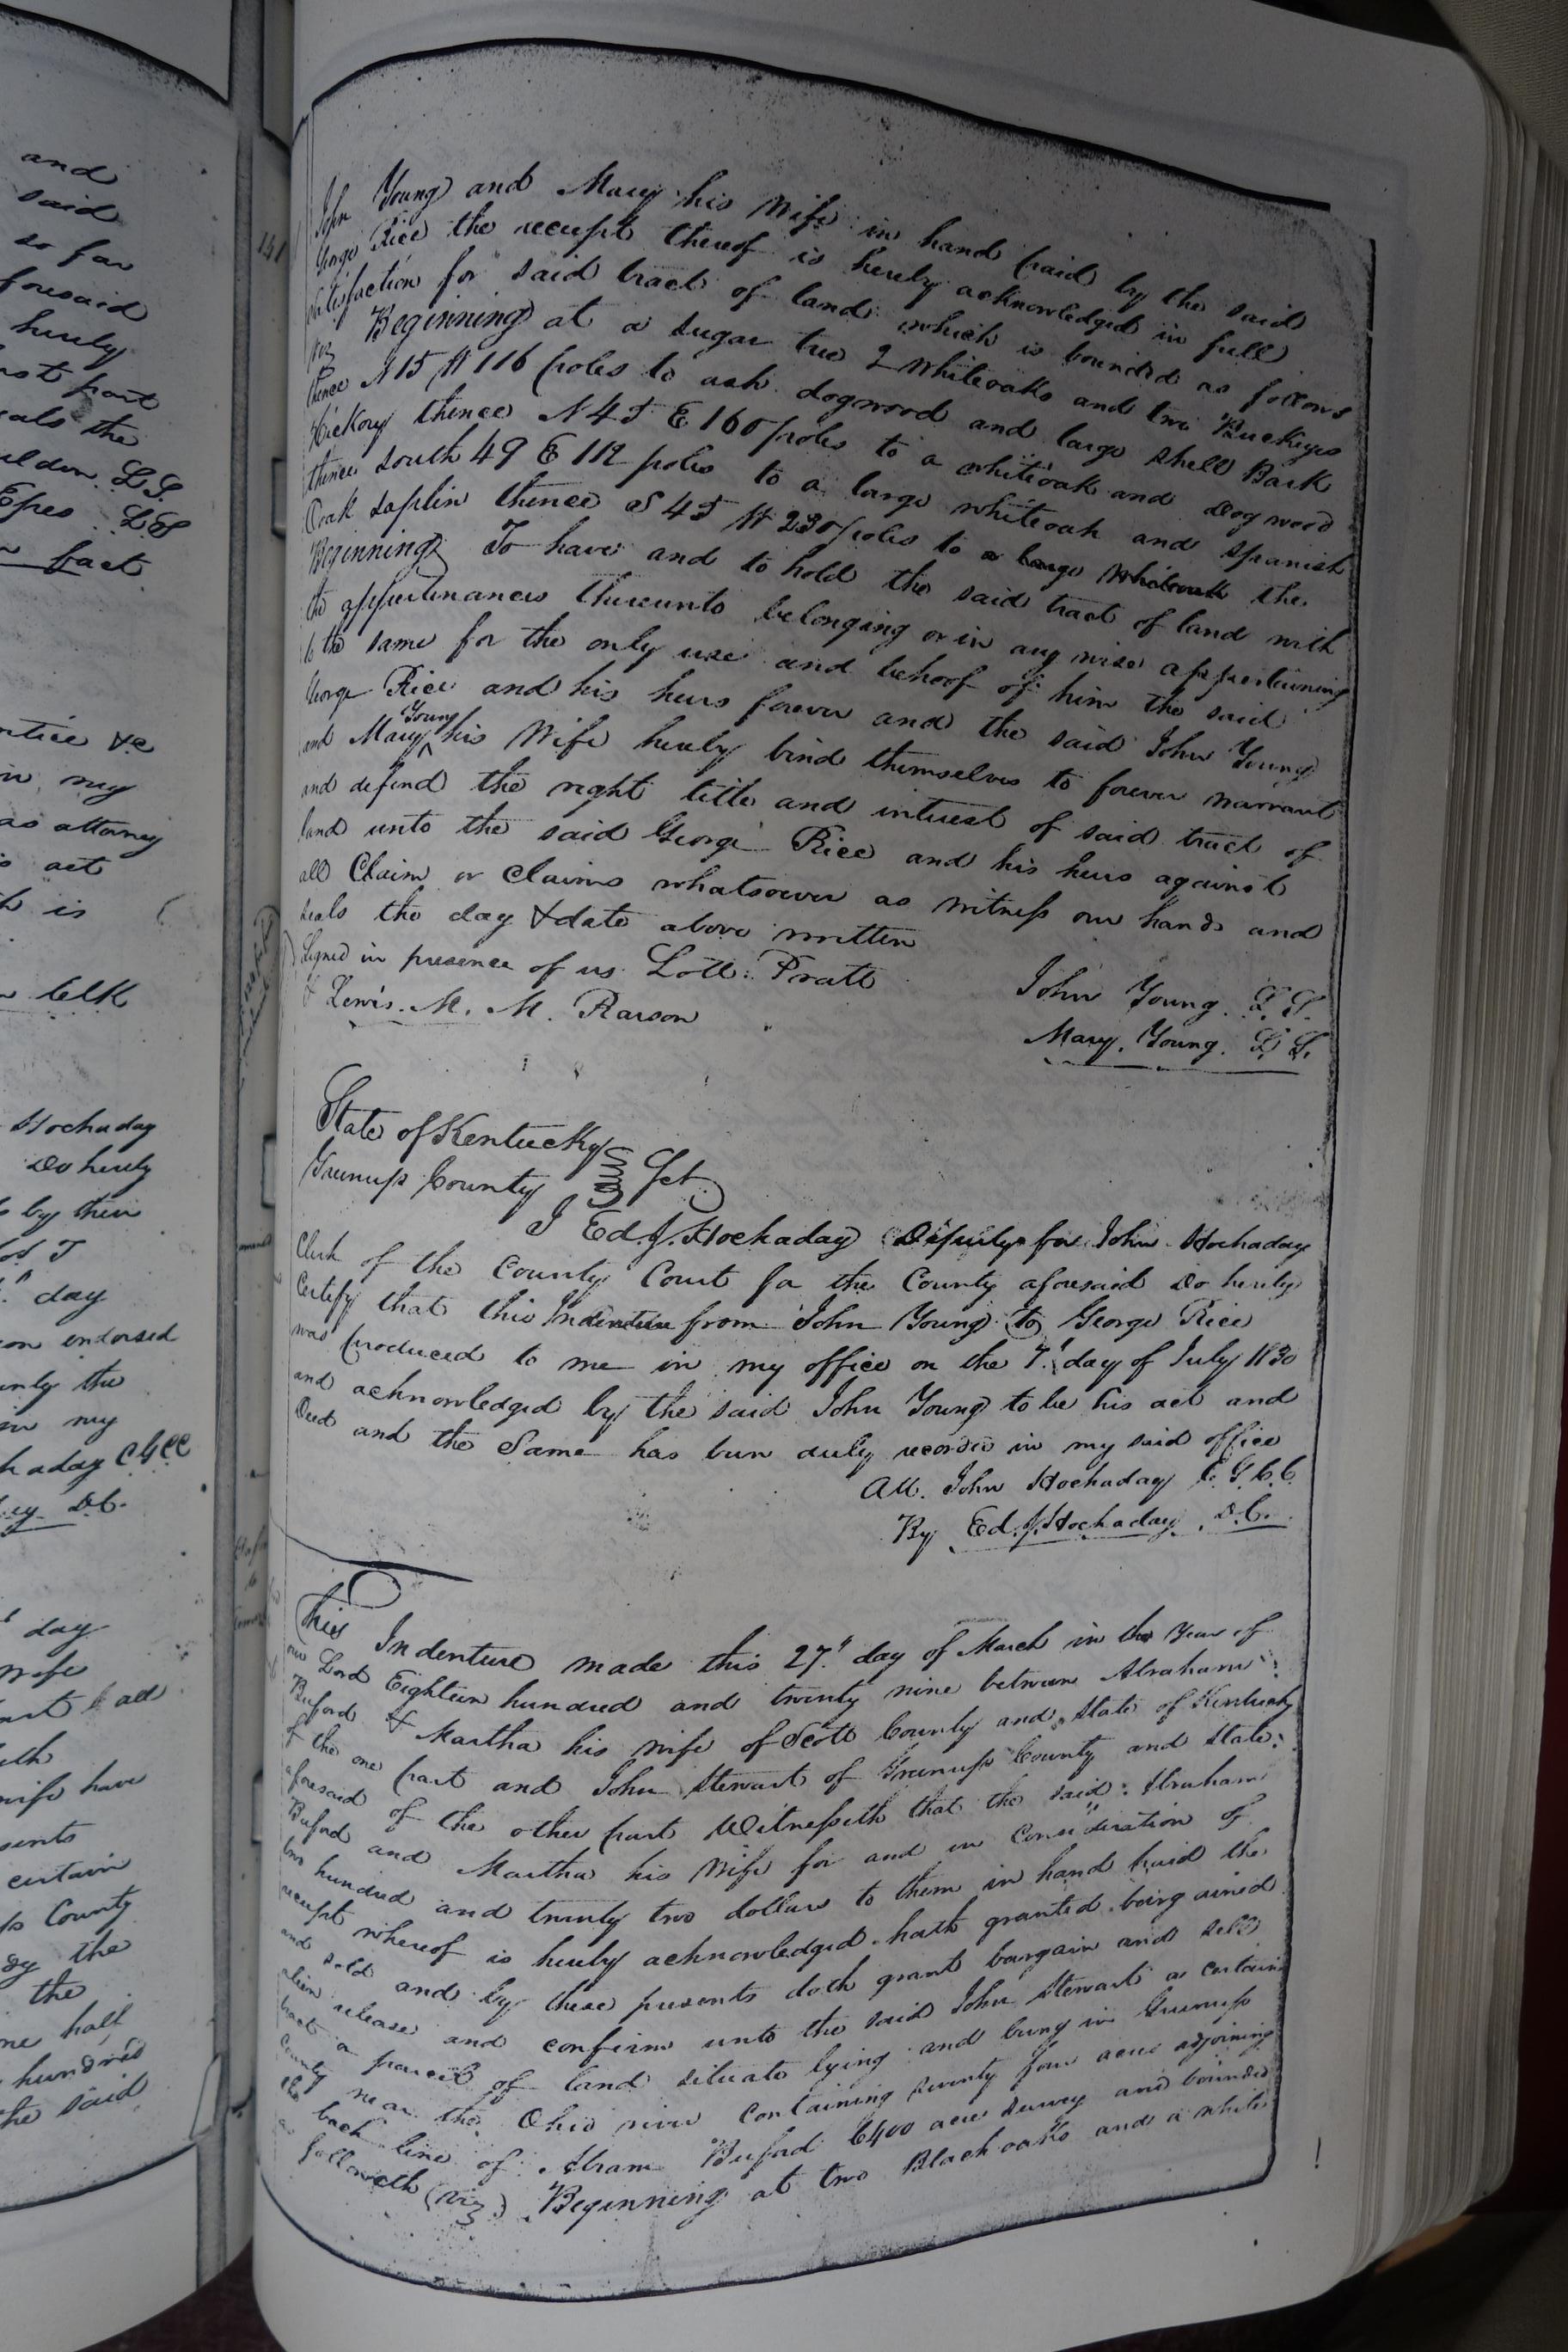 and
said
so far
foresaid
hereby
part
eals the
L.S.
Epes L.S.
fact
in my
as attorney
act
is
Clk
Hockaday
Do hereby
by their
day
on endorsed
the
in my
haday C G C C
D.C.
day
wife
all
wife have
sents
certain
County
the
the
one half
hundred
the said
141
John Young and Mary his Wife in hand paid by the said
George Rice the receipt thereof is hereby acknowledged in full
satisfaction for said tract of land which is bounded as follows
viz Beginning at a sugar tree 2 whiteoaks and two Buckeyes
thence N 15 W 116 poles to ash dogwood and large Shell Bark
Hickory thence N 45 E 160 poles to a whiteoak and Dogwood
thence south 49 E 112 poles to a large whiteoak and Spanish
Oak saplin thence S 45 W 230 poles to a large whiteoak the
Beginning To have and to hold the said tract of land with
the appurtinances thereunto belonging or in any wise appertaining
to the same for the only use and behoof of him the said
George Rice and his heirs forever and the said John Young
and Mary Young his Wife hereby bind themselves to forever warrant
and defend the right title and interest of said tract of
land unto the said George Rice and his heirs against
all Claim or Claims whatsoever as witness our hands and
seals the day & date above written
Signed in presence of us Lott: Pratt
& Lewis. M. M. Rarson
John Young. L. S.
Mary. Young. L. S.
State of Kentucky
Greenup County Sct
I Ed. J. Hockaday Deputy for John Hockaday
Clerk of the County Court for the County aforesaid Do hereby
Certify that this Indenture from John Young to George Rice
was produced to me in my office on the 7th day of July 1830
and acknowledged by the said John Young to be his act and
Deed and the Same has been duly recorded in my said office
Att. John Hockaday C. G. C. C.
By Ed. J. Hockaday. D. C.
This Indenture made this 27th day of March in the Year of
our Lord Eighteen hundred and twenty nine between Abraham
Buford & Martha his wife of Scott County and State of Kentucky
of the one part and John Stewart of Greenup County and State
aforesaid of the other part Witnesseth that the said Abraham
Buford and Martha his Wife for and in Consideration of
two hundred and twenty two dollars to them in hand paid the
receipt whereof is hereby acknowledged hath granted bargained
and sold and by these presents doth grant bargain and sell
alien release and confirm unto the said John Stewart a certain
tract or parcel of land situate lying and being in Greenup
County near the Ohio river containing seventy four acres adjoining
the back line of Abram Buford 6400 acre survey and bounded
as followeth (viz) Beginning at two Black oaks and a white